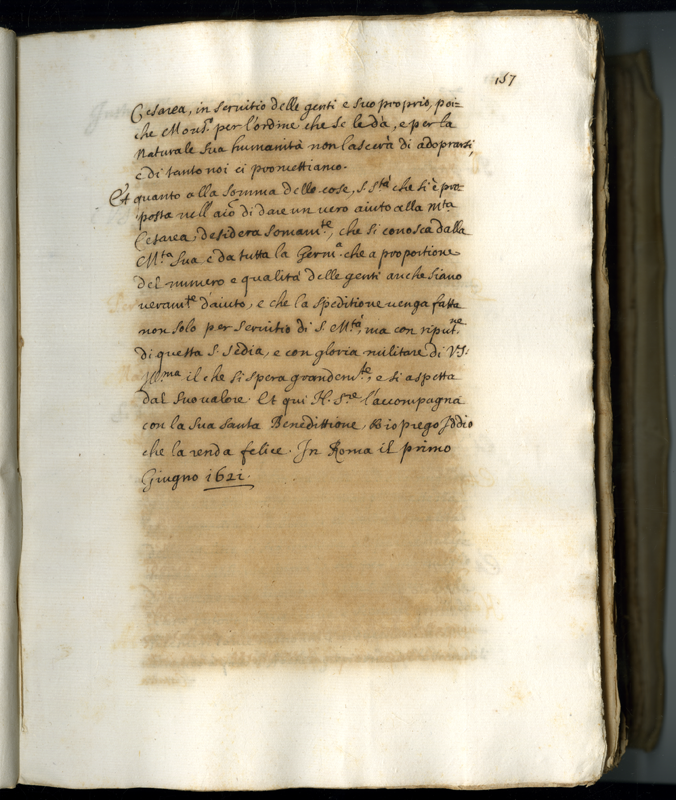 157
Cesarea, in servitio delle genti e suo proprio, poi=
che Mons.r per l'ordine che se le da, e per la
Naturale sua humanità non lascerà di adoprarsi,
e di tanto noi ci promettiamo.
Et quanto alla somma delle cose, S. S.tà che si è pro
posta nell'aio di dare un vero aiuto alla M.tà
Cesarea desidera somam.te, che si conosca dalla
M.tà Sua e da tutta la Germ.a che a proportione
del numero e qualità delle genti anche siano
veram.te d'aiuto, e che la speditione venga fatta
non solo per servitio di S. M.tà, ma con riput.ne
di questa S. Sedia, e con gloria militare di V.S.
Ill.ma il che si spera grandem.te, e si aspetta
dal suo valore. Et qui N. S.re l'accompagna
con la sua santa Benedittione, et io prego Iddio
che la renda felice. In Roma il primo
Giugno 1621.